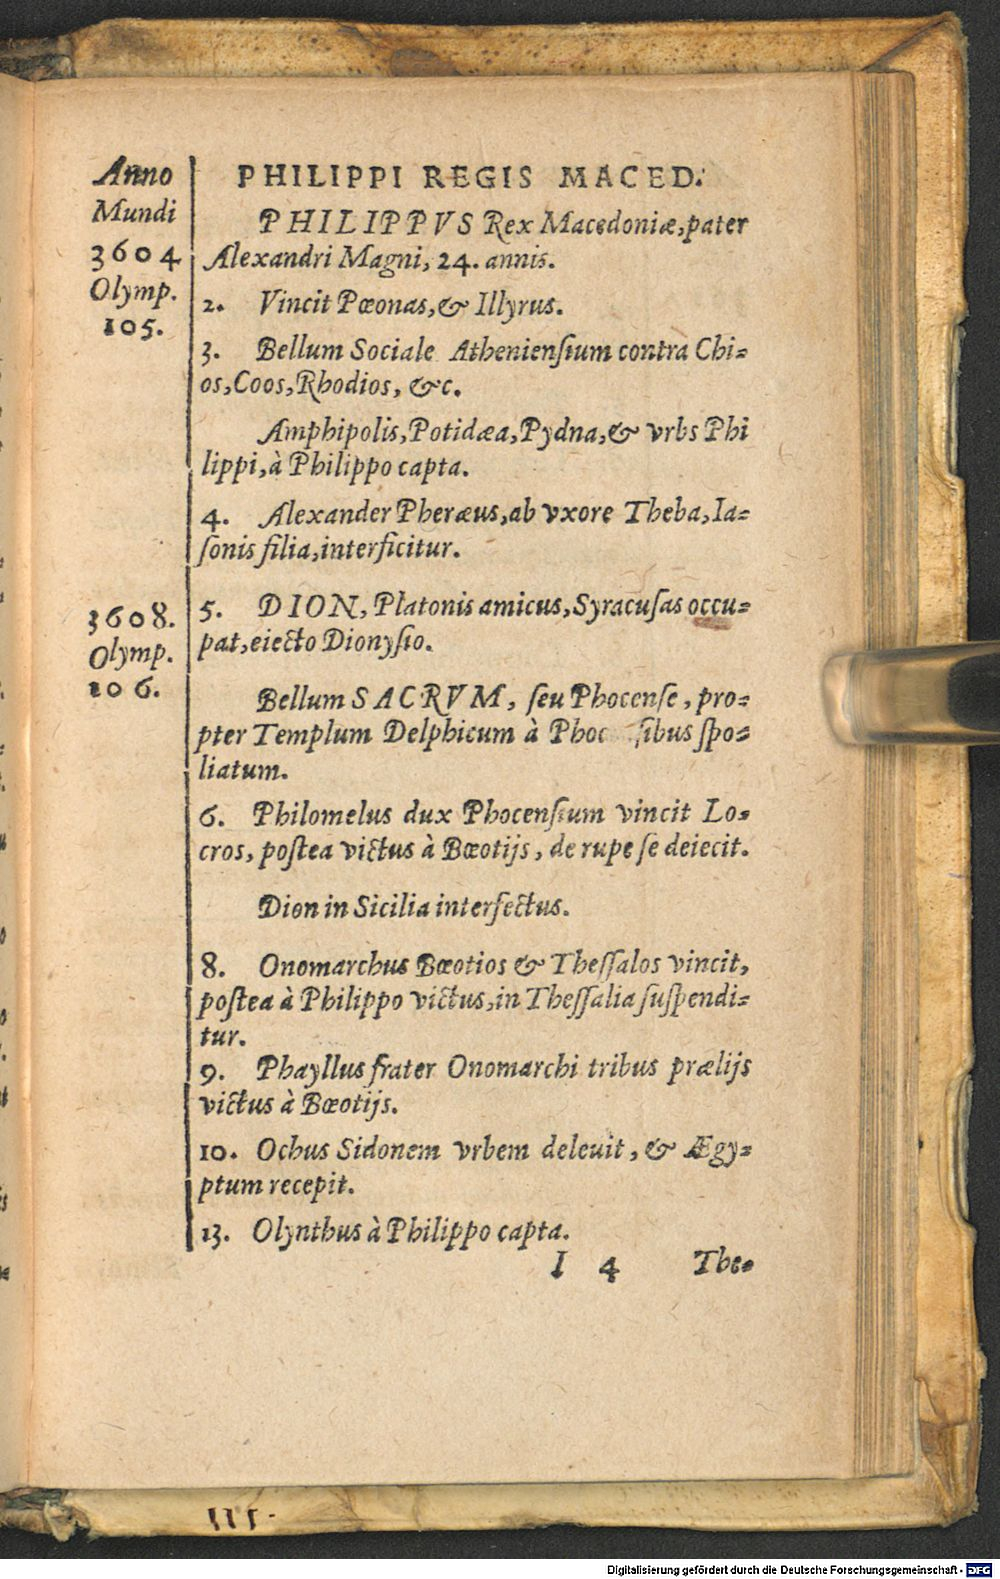 Anno
Mundi
3604
Olymp.
105.
PHILIPPI REGIS MACED.
PHILIPPVS Rex Macedoniæ, pater
Alexandri Magni, 24. annis.
2. Vincit Pœonas, & Illyrus.
3. Bellum Sociale Atheniensium contra Chi-
os, Coos, Rhodios, &c.
Amphipolis, Potidæa, Pydna, & vrbs Phi
lippi, à Philippo capta.
4. Alexander Pheræus, ab vxore Theba, Ia-
sonis filia, interficitur.
3608.
Olymp.
106.
5. DION, Platonis amicus, Syracusas occu-
pat, eiecto Dionysio.
Bellum SACRVM, seu Phocense, pro-
pter Templum Delphicum à Phoc sibus spo-
liatum.
6. Philomelus dux Phocensium vincit Lo-
cros, postea victus à Bœotijs, de rupe se deiecit.
Dion in Sicilia interfectus.
8. Onomarchus Bœotios & Thessalos vincit,
postea à Philippo victus, in Thessalia suspendi-
tur.
9. Phayllus frater Onomarchi tribus prælijs
victus à Bœotijs.
10. Ochus Sidonem vrbem deleuit, & Ægy-
ptum recepit.
13. Olynthus à Philippo capta.
I 4 The-
Digitalisierung gefördert durch die Deutsche Forschungsgemeinschaft - DFG